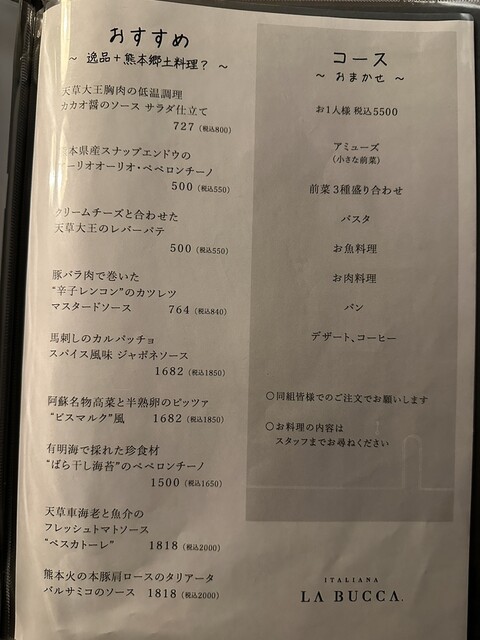 おすすめ
～ 逸品＋熊本郷土料理？ ～
天草大王胸肉の低温調理
カカオ醤のソース サラダ仕立て
727 (税込800)
熊本県産スナップエンドウの
アーリオオーリオ・ペペロンチーノ
500 (税込550)
クリームチーズと合わせた
天草大王のレバーパテ
500 (税込550)
豚バラ肉で巻いた
“辛子レンコン”のカツレツ
マスタードソース 764 (税込840)
馬刺しのカルパッチョ
スパイス風味 ジャポネソース
1682 (税込1850)
阿蘇名物高菜と半熟卵のピッツァ
“ビスマルク”風 1682 (税込1850)
有明海で採れた珍食材
“ばら干し海苔”のペペロンチーノ
1500 (税込1650)
天草車海老と魚介の
フレッシュトマトソース
“ペスカトーレ” 1818 (税込2000)
熊本火の本豚肩ロースのタリアータ
バルサミコのソース 1818 (税込2000)
コース
～ おまかせ ～
お1人様 税込5500
アミューズ
(小さな前菜)
前菜3種盛り合わせ
パスタ
お魚料理
お肉料理
パン
デザート、コーヒー
○同組皆様でのご注文でお願いします
○お料理の内容は
スタッフまでお尋ねください
ITALIANA
LA BUCCA.